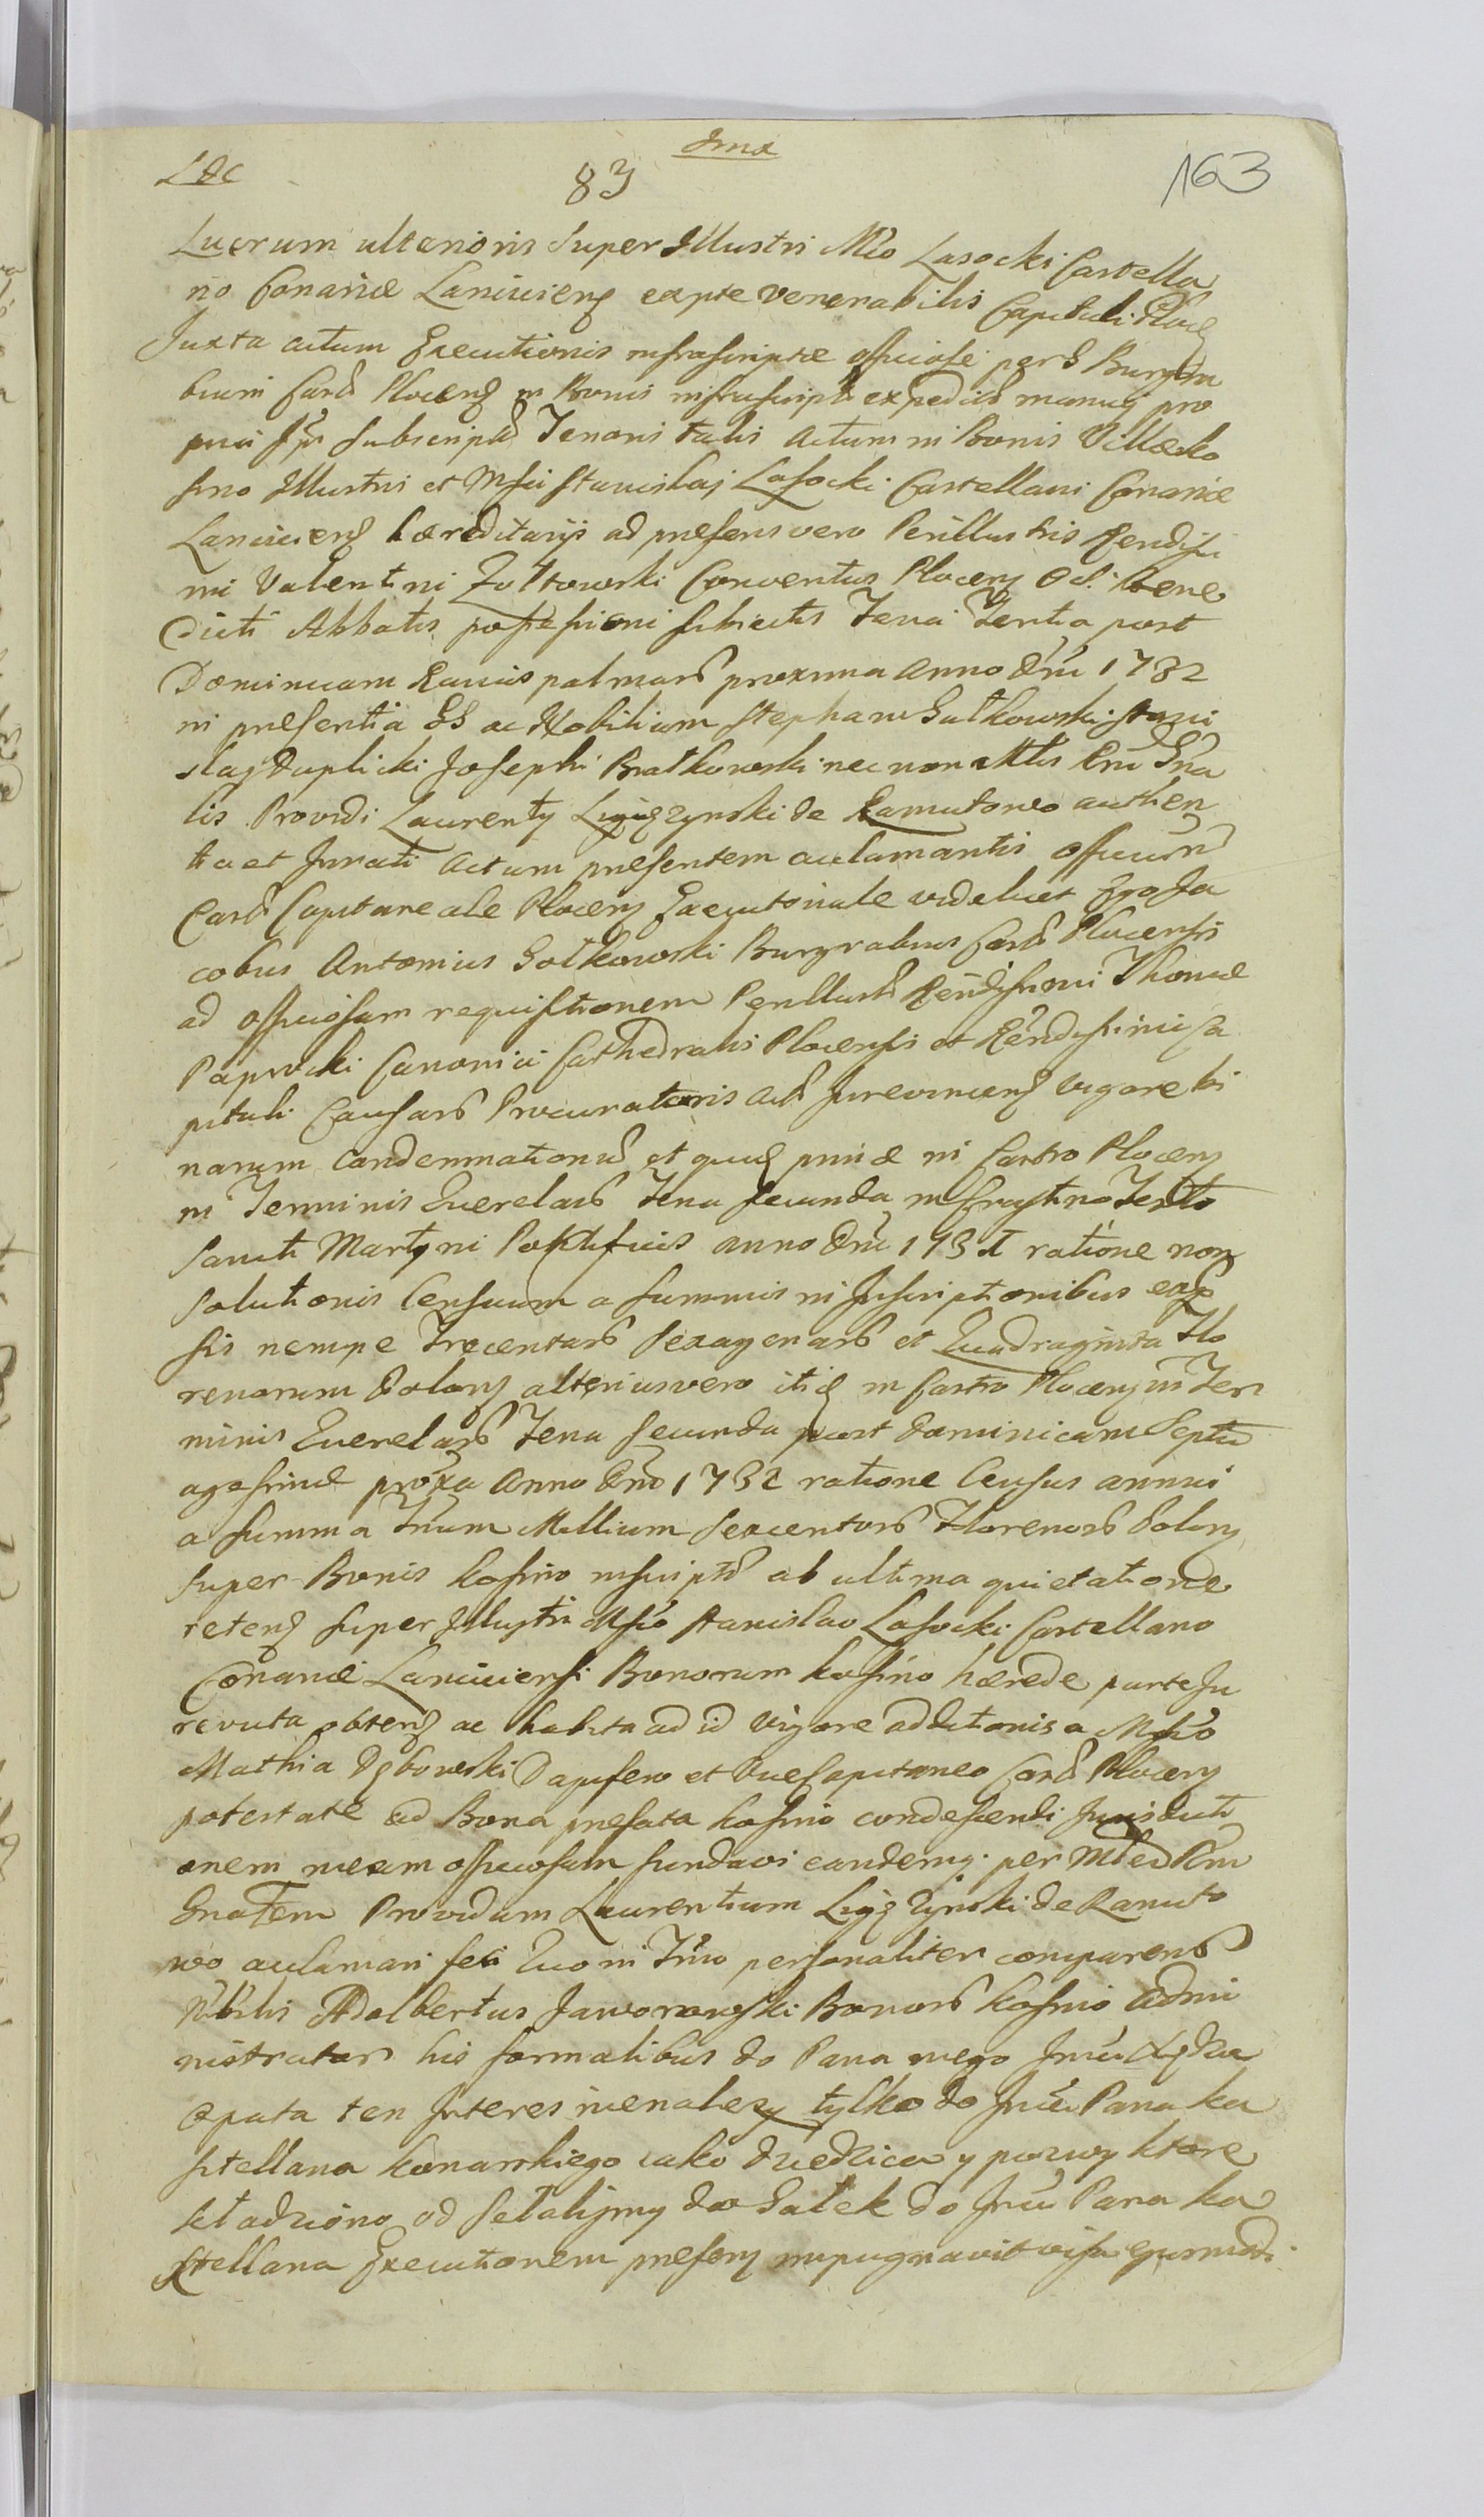 Ima
L&C
83
163
Lucrum ulterioris super Illustri Mco Lasocki Castella
no Conariæ Lanciciens expte Venerabilis Capituli Ploc
Juxta actum Executionis infrascriptæ officiose per G Burgra
bium Castr Plocens in Bonis infrascript expedit manu pro
pria subscript Tenoris talis Actum in Bonis Villæ Ko
sino Illustris et Mfci Stanislai Lasocki Castellani Conariæ
Lanciciens hæreditarijs ad præsens vero Perillustris Rendissi
mi Valentini Zołtowski Conventus Plocens Bene
dicti Abbatis possessioni subiectis Feria Tertia post
Dominicam Ramispalmar proxima Anno Dni 1732
in præsentia GG ac Nobilium Stephani Sułkowski Stani
slaj Duplicki Josephi Brałkowski nec non Mtlis Rni Gna
lis Providi Laurentij Ligęzynski de Ramutowo authen
tici et Jurati Actum præsentem acclamantis officium
Castr Capitaneale Plocens Executoriale videlicet Ego Ja
cobus Antonius Gołkowski Burgrabius Castr Plocensis
ad officiosam requisitionem Perillustr Rendissimi Thomæ
Paprocki Canonici Cathedralis Plocensis et Rendissimi Ca
pituli Causar Procuratoris Act Jurevincens vigore bi
narum Condemnationu et quid primæ in Castro Plocens
in Terminis Querelar Feria secunda in Crastino Festo
Sancti Martyni Pontificis anno Dni 1731 ratione non
solutionis Censuum a summis in Inscriptionibus exp
sis nempe Trecentar Sexagenar et Quadraginta Flo
renorum Polons alterius vero itid in Castro Plocens in Ter
minis Querelar Feria secunda post Dominicam Septu
agesimæ proxa Anno Dno 1732 ratione Census annui
a summa Trium Millium Sexcentor Florenor Polons
super Bonis Kosino inscript ab ultima quietatione
retens super Illustri Mfco Stanislao Lasocki Castellano
Conariæ Lanciciensi Bonorum Kosino hærede parte Ju
revicta obtens ac habita ad id Vigore additionis a Mfco
Mathia Dębowski Dapifero et Vicecapitaneo Castr Plocens
potestate ad Bona præfata Kosino condescendi Jurisdicti
onem meam officiosam fundavi eandemq per Mtlem Rni
Gnałem Providum Laurentium Ligęzynski de Ramuto
wo acclamari feci Quo in Tmo personaliter comparens
Nblis Adalbertus Jaworowski Bonor Kosino Admi
nistrator his formalibus do Pana mego Jmci Xiędza
Opata ten Interes nienalezy tylko do Jmci Pana Ka
sztellana Konarskiego iako Dziedzica y pozwy ktore
kładziono od sełalismy do Galek do Jmci Pana Ka
sztellana Executionem præsens impugnavit eiusmodi